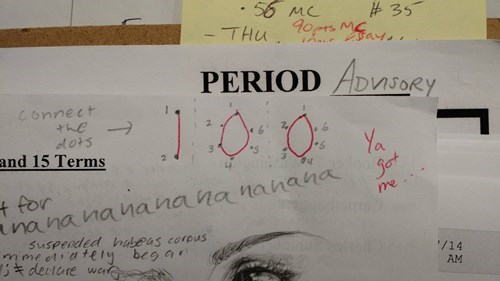 · 56 MC # 35
- THU 90pts MC
PERIOD ADVISORY
connect
the
dots →
1 2
1 2 3 4 5 6
1 2 3 4 5 6
Ya
got
me...
and 15 Terms
t for
nananananananananana
suspended habeas corpus
immediately began
declare war
/14
AM